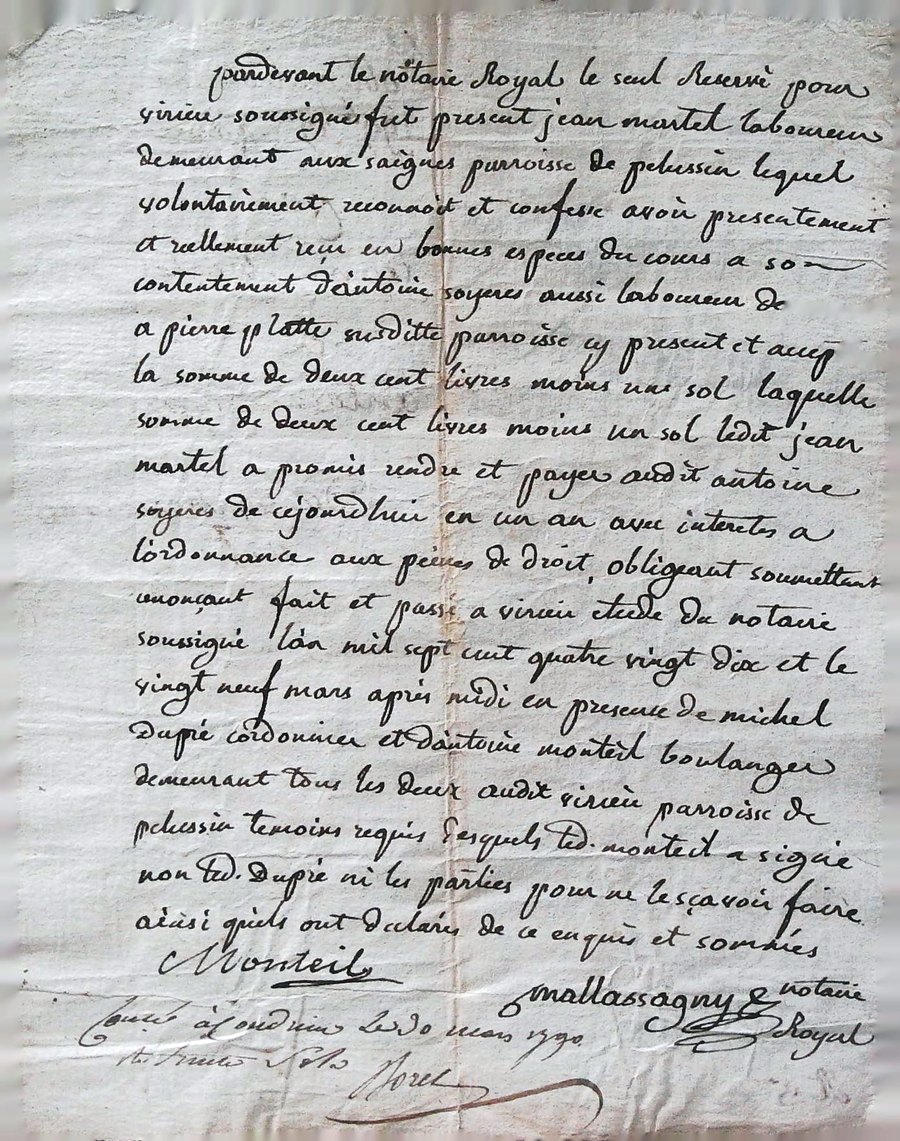 pardevant le notaire Royal le seul Reservé pour
virieu soussigné fut present jean martel laboureur
demeurant aux saignes parroisse de pelussin lequel
volontairement reconnoit et confesse avoir presentement
et reellement reçu en bonnes especes du cours a so
contentement d'antoine soyeres aussi laboureur de
a pierre platte susditte parroisse cy present et accep
la somme de deux cent livres moins une sol laquelle
somme de deux cent livres moins un sol ledit jean
martel a promis rendre et payer audit antoine
soyeres de cejourdhui en un an avec interetes a
l'ordonnance aux peines de droit, obligeant soumettant
renonçant fait et passé a virieu etude du notaire
soussigné l'an mil sept cent quatre vingt dix et le
vingt neuf mars après midi en presence de michel
Dupré cordonnier et d'antoine monteil boulanger
demeurant tous les deux audit virieu parroisse de
pelussin temoins requis lesquels led. monteil a signé
non led. Dupré ni les parties pour ne le sçavoir faire
ainsi quils ont declarés de ce enquis et sommés
Monteil
mallassagny notaire
Royal
à Condrieu le 30 mars 1790
Sols